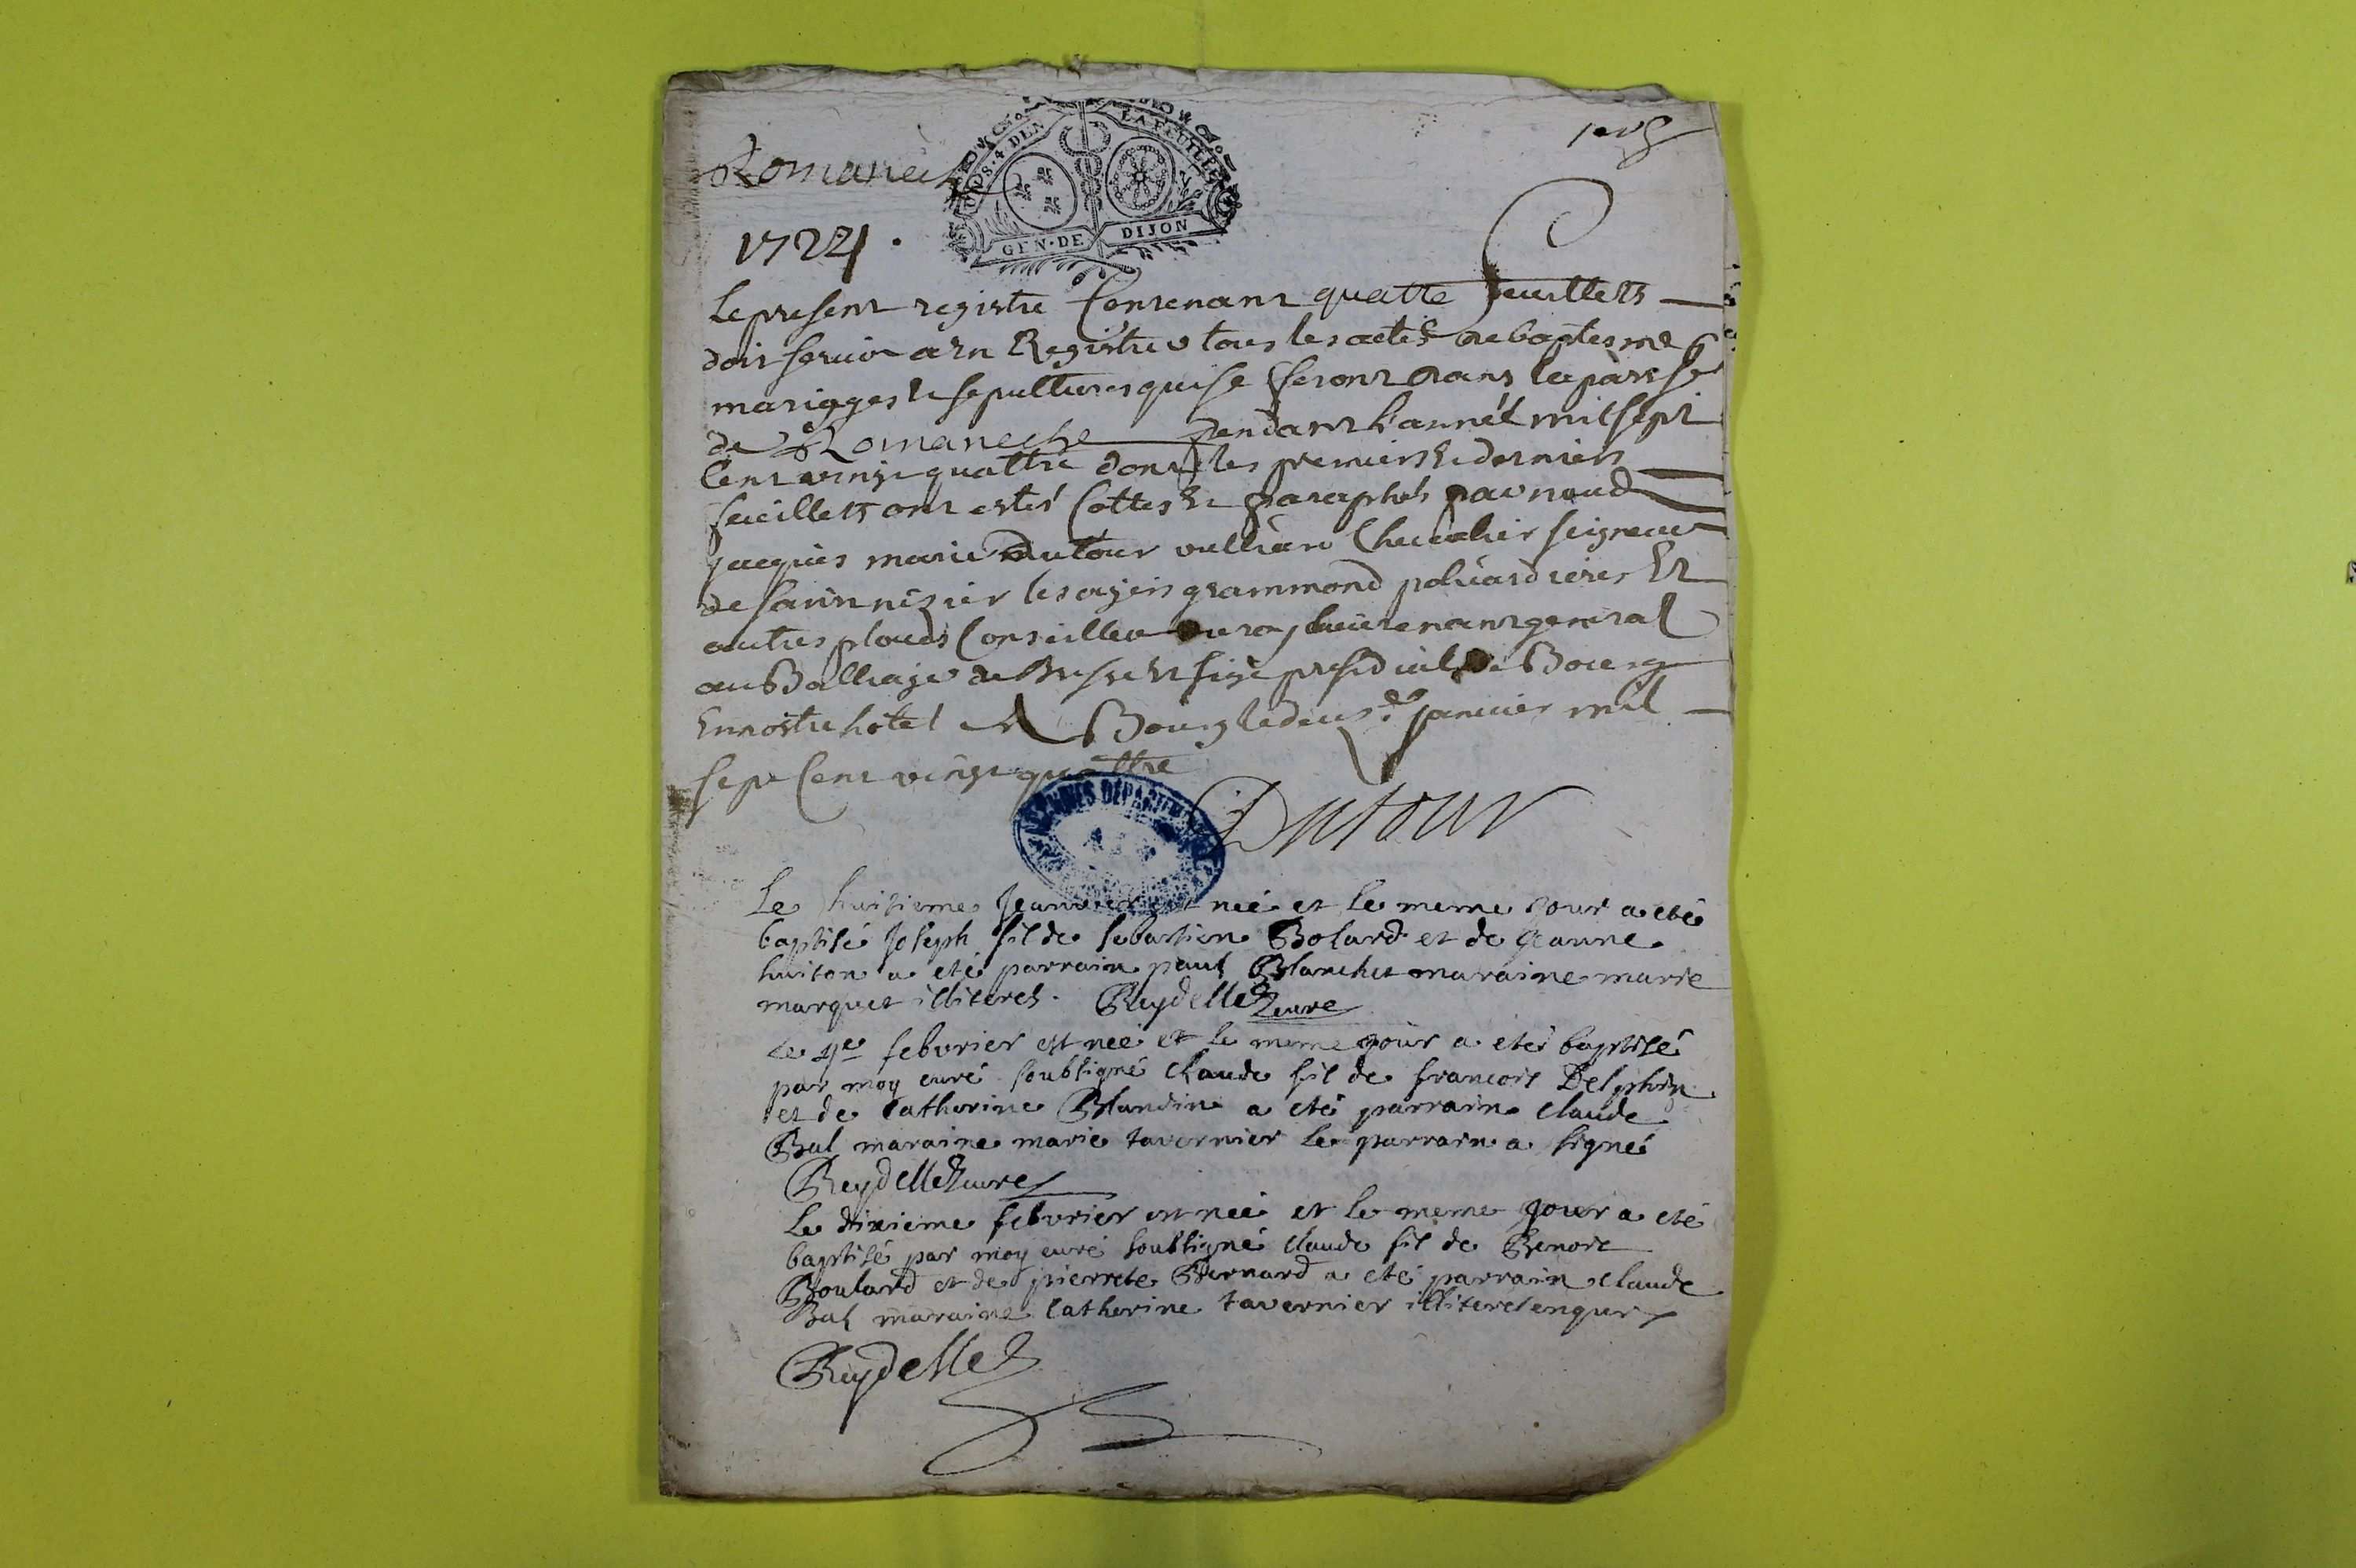 Romaneche
1724.
S. 4 DEN LA FEUILLE
GEN. DE DIJON
Le present registre Contenant quattre feuillets
doit servir a en Registrer tous les actes de baptesme
mariages et sepultures qui se feront dans la parisse
de Romaneche pendant l'année mil sept
Cent vingt quattre dont les premiers et derniers
feuillets ont estés Cottes et paraphés par nous
jacques marie Dutour vulliard Chevalier seigneur
de saint nizier grammond et
autres places Conseiller du roy lieutenant general
au Balliage de Bresse et siege presidial de Bourg
En nostre hotel a Bourg le deuxe janvier mil
sept Cent vingt quattre
Dutour
ARCHIVES DÉPARTEMENTALES
Le huitieme Jeanvier est neé et le meme jour a eté
baptisé Joseph fil de sebastien Bolard et de Jeanne
huiton a eté parrain paul Blanchet maraine marie
marquet illiteres. Reydellet cure
Le 4e febvrier est neé et le meme jour a eté baptisé
par moy curé soubsigné Claude fil de francois Delphin
et de Catherine Blandine a eté parrain claude
Bal maraine marie tavernier le parrain a signé
Reydellet cure
Le dixieme febvrier est neé et le meme jour a eté
baptisé par moy curé soubsigné claude fil de Benoit
Boulard et de pierrete Bernard a eté parrain claude
Bal maraine Catherine tavernier illiteres enquis
Reydellet